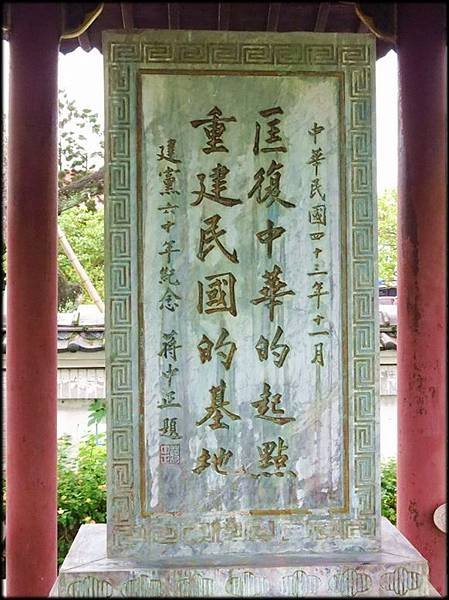 中華民國四十三年十一月
匡復中華的起點
重建民國的基地
建黨六十年紀念 蔣中正題